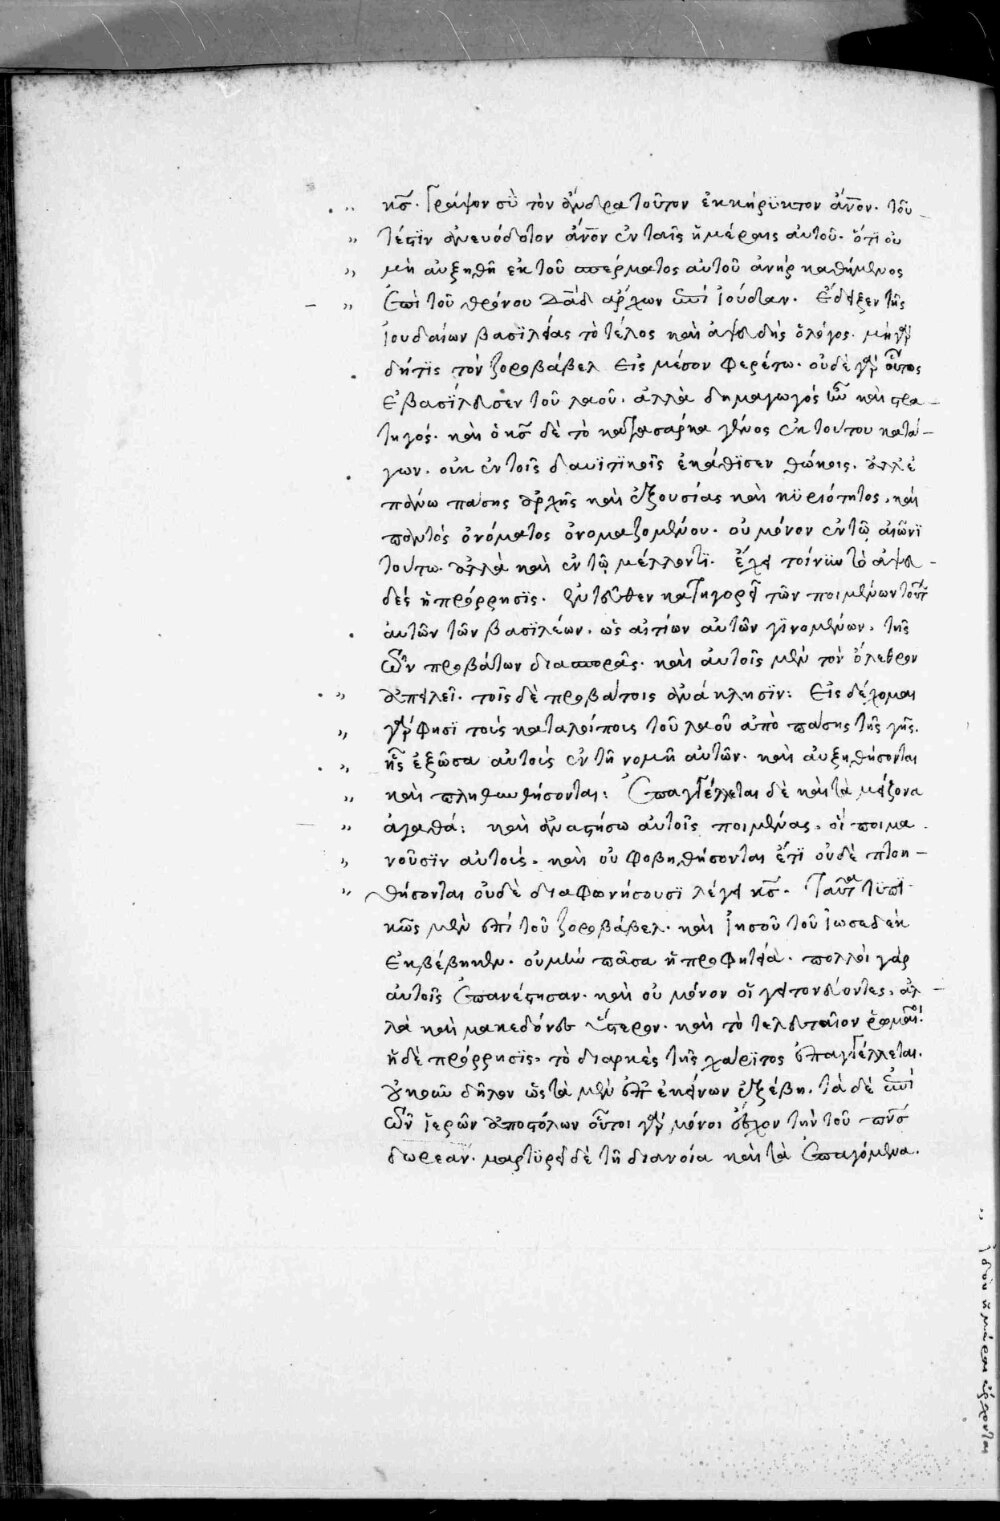 κς̄. Γράψον σὺ τὸν ἄνδρα τοῦτον ἐκκήρϋκτον ἄν̅ον. τοῦ
τέστϊν ἀνευόδοτον ἄν̅ον ἐν ταῖς ἡμέραις αὐτοῦ. ὅτϊ οὐ
μὴ αὐξηθῆ ἐκ τοῦ σπέρματος αὐτοῦ ἀνὴρ καθήμενος
ἐπὶ τοῦ θρόνου Δᾱδ ἄρχων ἐπὶ ϊούδαν. ἔδειξεν τῆς
ϊουδαίων βασϊλείας τὸ τέλος καὶ ἀψευδὴς ὁ λόγος. μὴ γὰρ
δή τϊς τὸν ζοροβάβελ εἰς μέσον φερέτω. οὐδὲ γὰρ οὗτος
ἐβασίλευσεν τοῦ λαοῦ. ἀλλὰ δημαγωγὸς ἦν καὶ στρα
τηγός. καὶ ὁ κς̄ δὲ τὸ κατὰ σάρκα γένος ἐκ τούτου κατά
γων. οὐκ ἐν τοῖς δαυϊτϊκοῖς ἐκάθϊσεν θώκοις. ἀλλ' ἐ
πάνω πάσης ἀρχῆς καὶ ἐξουσίας καὶ κϋριότητος, καὶ
παντὸς ὀνόματος ὀνομαζομένου. οὐ μόνον ἐν τῷ αἰῶνϊ
τούτω. ἀλλὰ καὶ ἐν τῷ μέλλοντϊ. ἔχει τοίνϋν τὸ ἀψευ
δὲς ἡ πρόρρησϊς. ἐντεῦθεν κατηγορεῖ τῶν ποιμένων τουτ
αὐτῶν τῶν βασϊλέων. ὡς αἰτίων αὐτῶν γϊνομένων. τῆς
τῶν προβάτων διασπορᾶς. καὶ αὐτοῖς μὲν τὸν ὄλεθρον
ἀπειλεῖ. τοῖς δὲ προβάτοις ἀνάκλησϊν: Εἰσδέχομαι
γὰρ φησϊ τοὺς καταλοίπους τοῦ λαοῦ ἀπὸ πάσης τῆς γῆς.
ἧς ἐξῶσα αὐτοὺς ἐν τῆ νομῆ αὐτῶν. καὶ αὐξηθήσονται
καὶ πληθυνθήσονται: ἐπαγγέλλεται δὲ καὶ τὰ μείζονα
ἀγαθά: καὶ ἀναστήσω αὐτοῖς ποιμένας. οἳ ποιμα
νοῦσϊν αὐτούς. καὶ οὐ φοβηθήσονται ἔτϊ οὐδὲ πτοη
θήσονται οὐδὲ διαφωνήσουσϊ λέγει κς̄. Ταῦτα τϋπϊ
κῶς μὲν ἐπὶ τοῦ ζοροβάβελ. καὶ Ἰησοῦ τοῦ ϊωσεδὲκ
ἐκβέβηκεν. οὐ μὴν πᾶσα ἡ προφητεία. πολλοὶ γὰρ
αὐτοῖς ἐπανέστησαν. καὶ οὐ μόνον οἱ γειτονεύοντες, ἀλ
λὰ καὶ μακεδόνες ὕστερον. καὶ τὸ τελευταῖον ῥωμαῖοι.
ἡ δὲ πρόρρησϊς. τὸ διαρκὲς τῆς χάρϊτος ἐπαγγέλλεται.
οὐκοῦν δῆλον ὡς τὰ μὲν ἐπ' ἐκείνων ἐξέβη. τὰ δὲ ἐπὶ
τῶν ϊερῶν ἀποστόλων οὗτοι γὰρ μόνοι ἔσχον τὴν τοῦ πν̅ς
δωρεάν. μαρτϋρεῖ δὲ τῆ διανοία καὶ τὰ ἐπαγόμενα.
ἰδοὺ ἡμέραι ἔρχονται